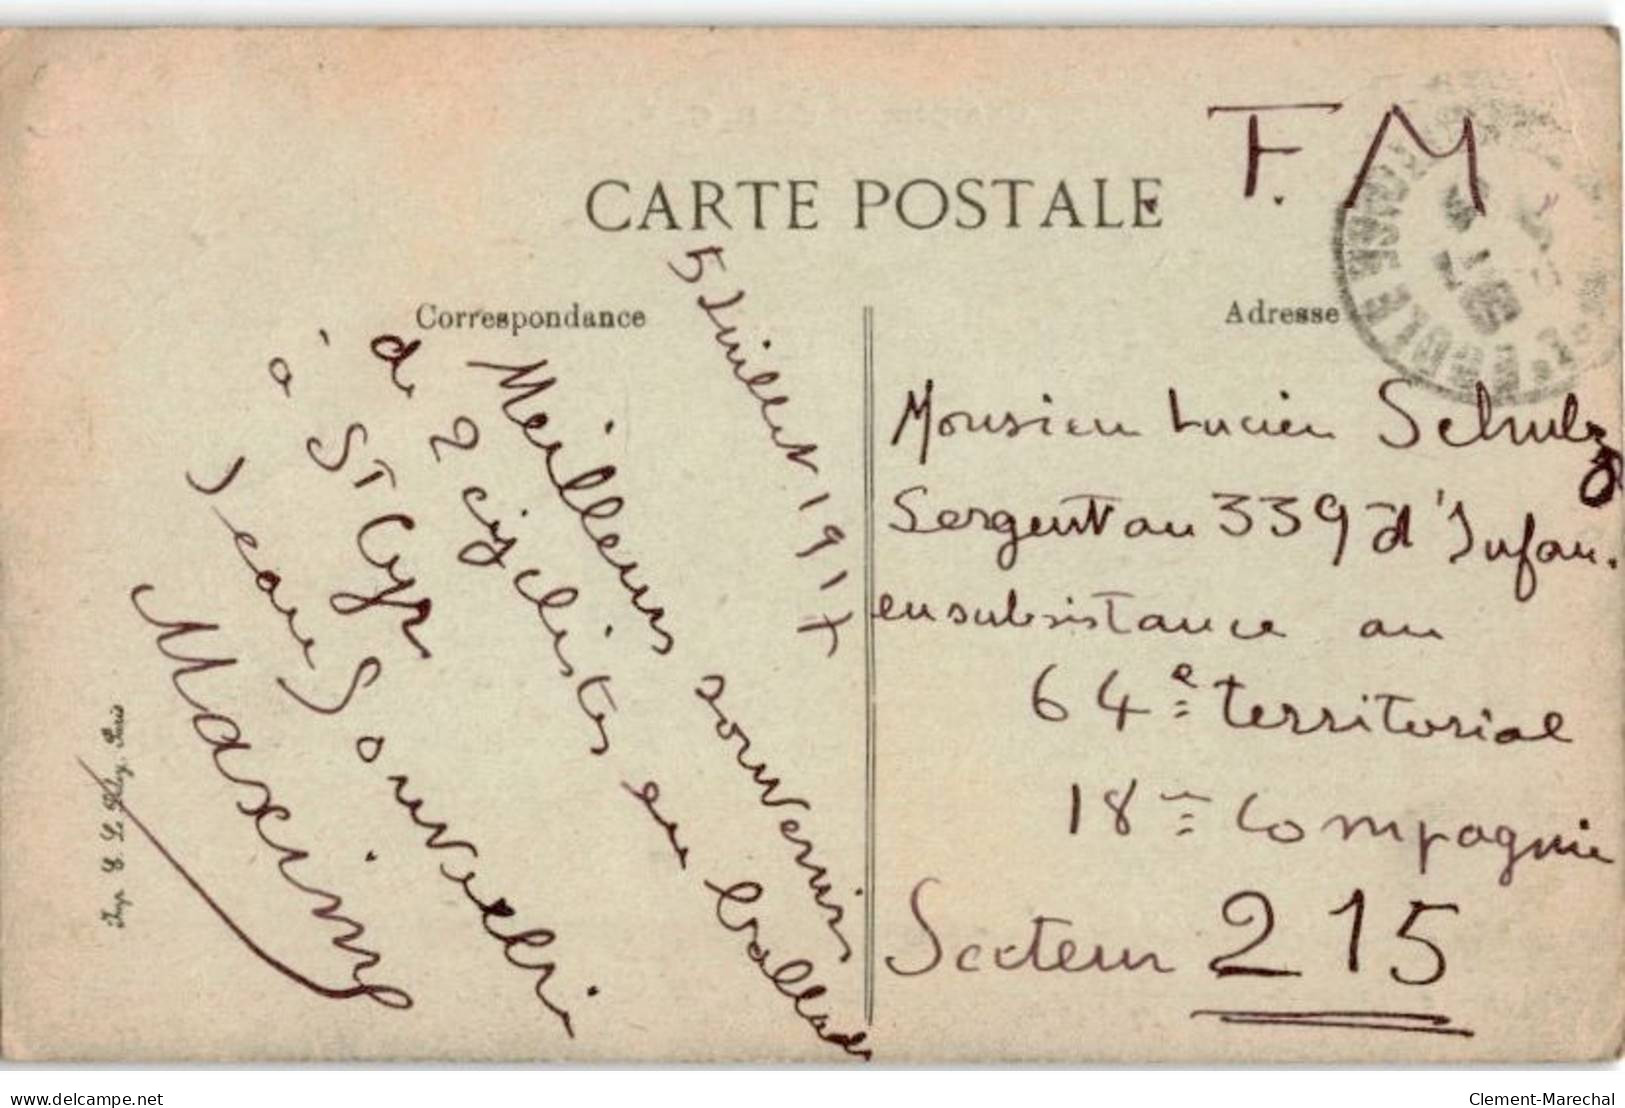 F. M.
CARTE POSTALE
Correspondance
Adresse
5 Juillet 1917
Meilleurs souvenirs
de 2 cyclistes en ballade
à St Cyr
Jean Souvelli
Maxime
Monsieur Lucien Schulz
Sergent au 339 d'Infan.
en subsistance au
64e territorial
18me Compagnie
Secteur 215
Imp. E. Le Deley, Paris
www.delcampe.net
Clement-Marechal